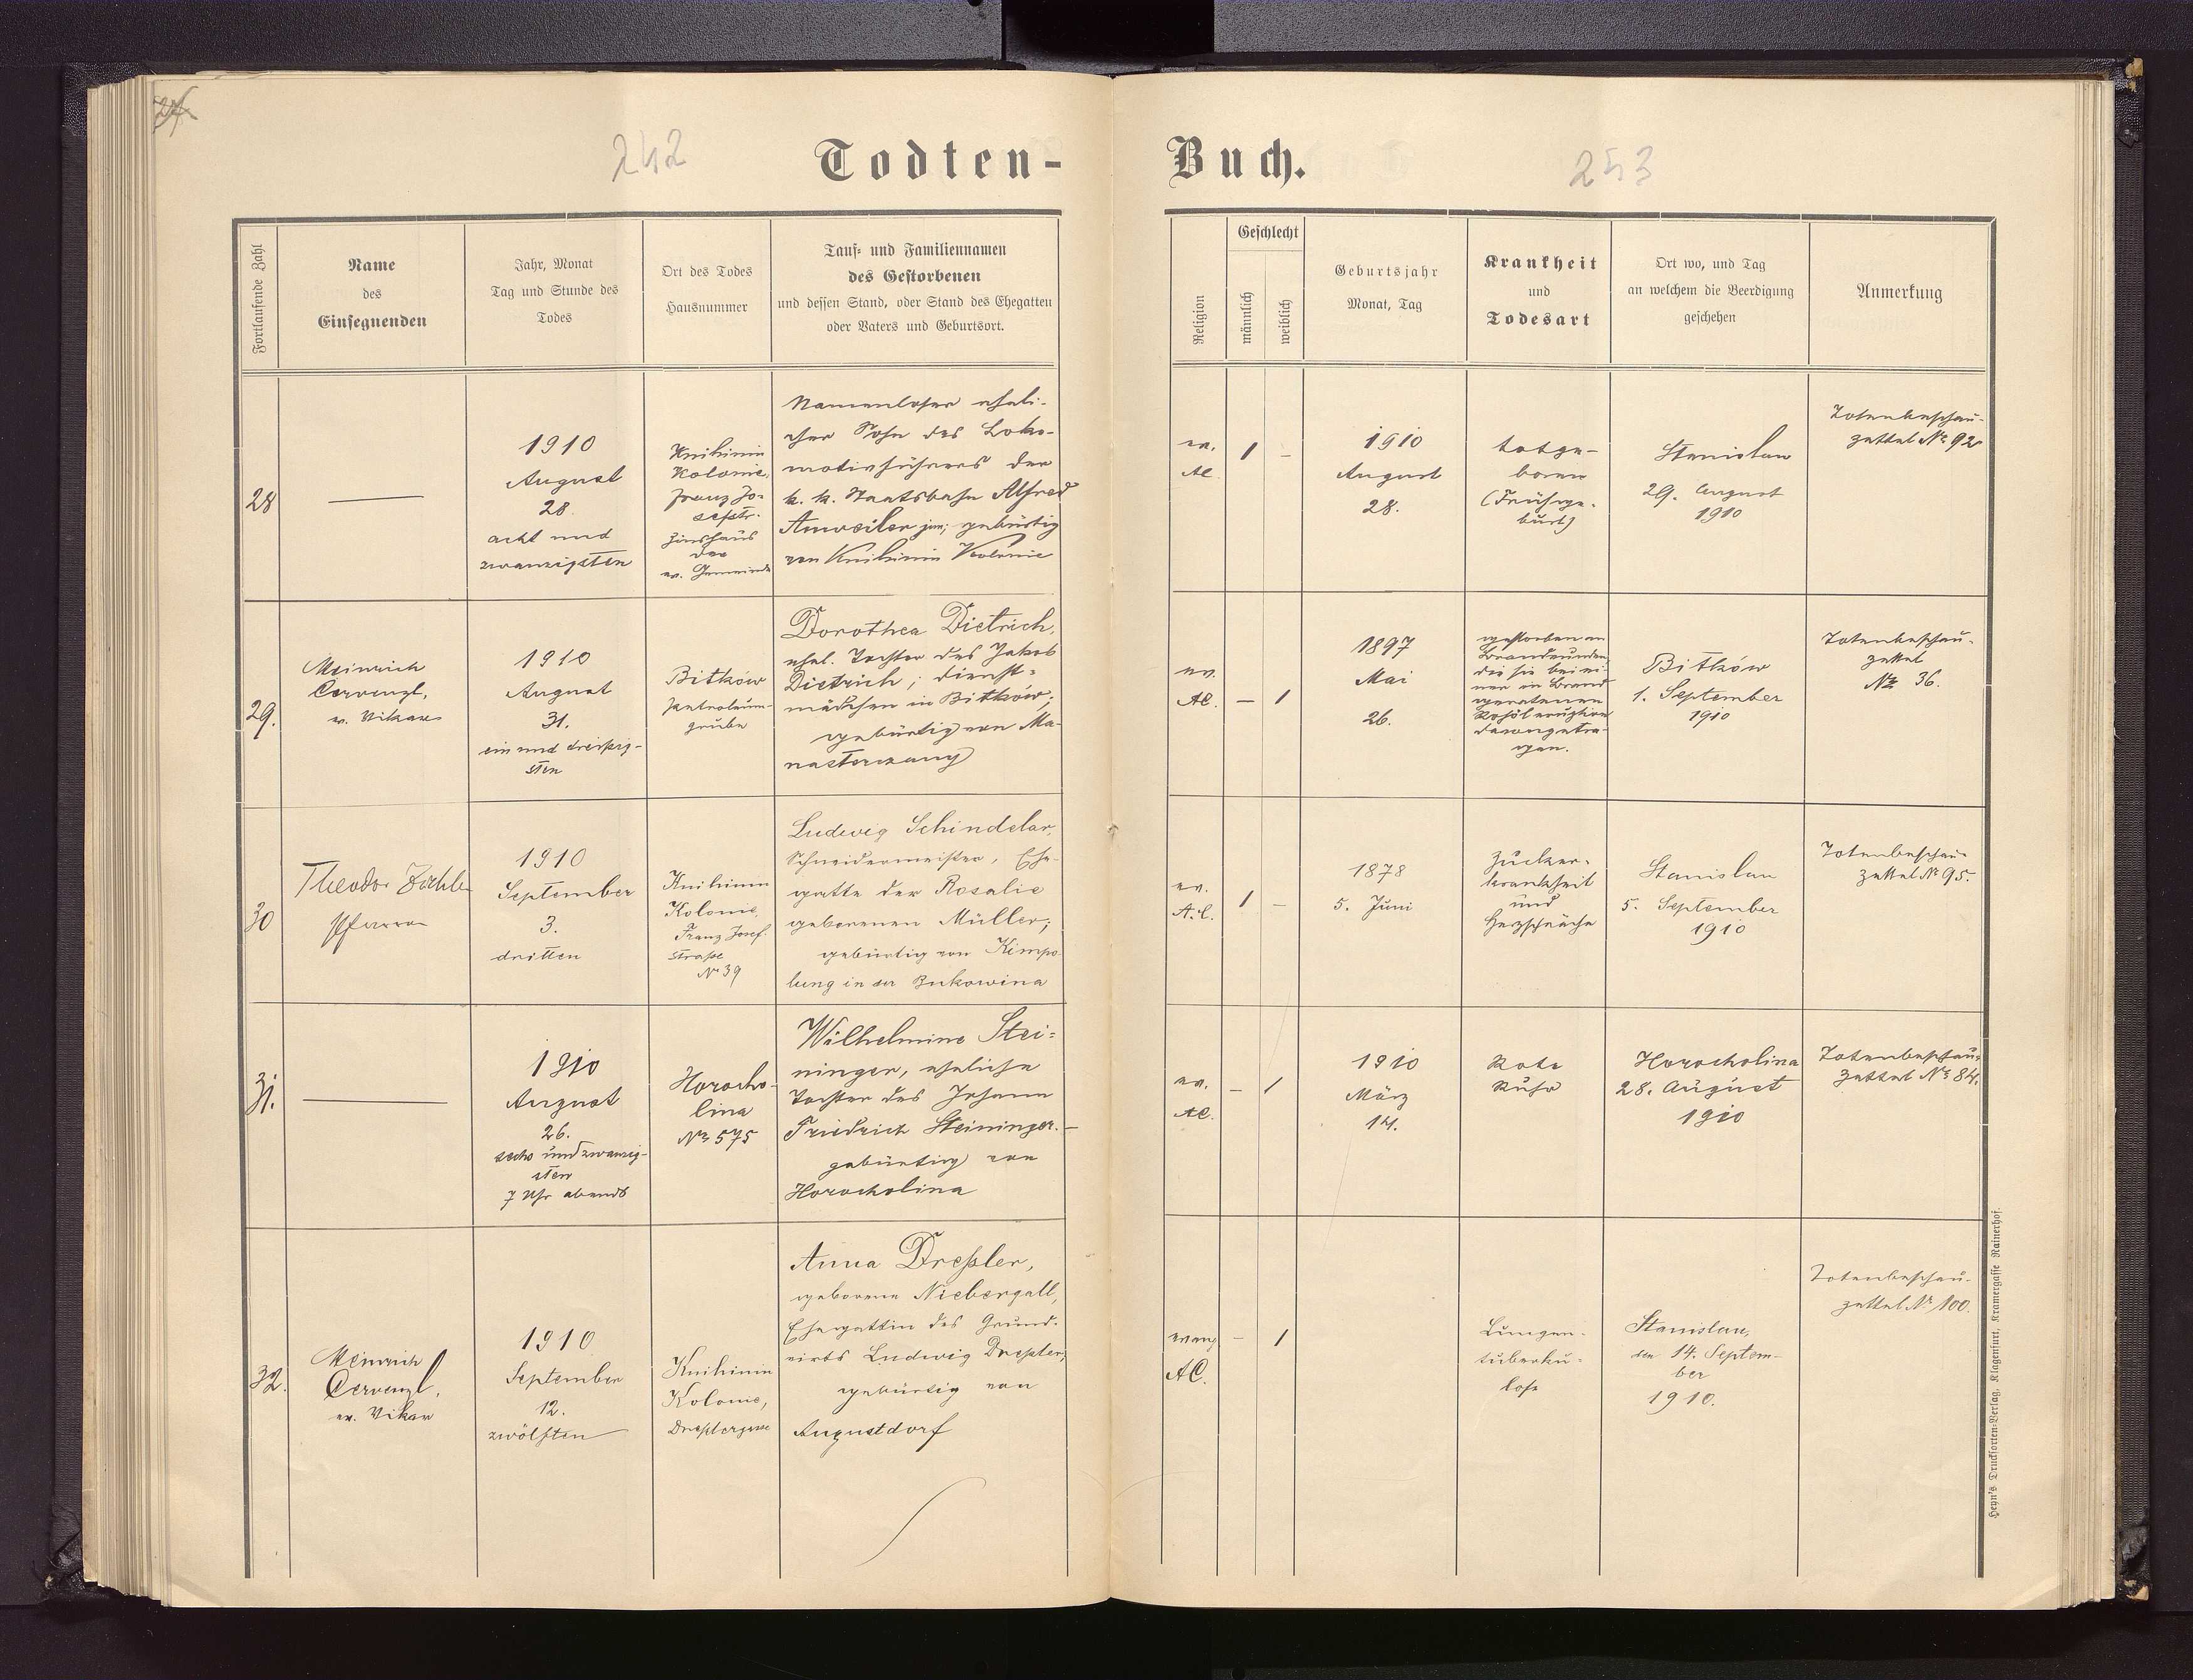 242
Todten-
Buch.
253
Fortlaufende Zahl
Name
des
Einsegnenden
Jahr, Monat
Tag und Stunde des
Todes
Ort des Todes
Hausnummer
Tauf- und Familiennamen
des Gestorbenen
und dessen Stand, oder Stand des Ehegatten
oder Vaters und Geburtsort.
Religion
Geschlecht
männlich
weiblich
Geburtsjahr
Monat, Tag
Krankheit
und
Todesart
Ort wo, und Tag
an welchem die Beerdigung
geschehen
Anmerkung
28
—
1910
August
28
acht und
zwanzigsten
Knihinin
Kolonie,
Franz Jo-
sefstr.
Zinshaus
der
ev. Gemeinde
Namenloser eheli-
cher Sohn des Loko-
motivführers der
k. k. Staatsbahn Alfred
Amweiler jun; gebürtig
von Knihinin Kolonie
ev.
AC.
1
–
1910
August
28.
totge-
boren
(Frühge-
burt)
Stanislau
29. August
1910
Totenbeschau-
zettel No 92
29.
Heinrich
Cervenzl,
ev. Vikar
1910
August
31.
ein und dreißig-
sten
Bitków
Petroleum-
grube
Dorothea Dietrich,
ehel. Tochter des Jakob
Dietrich; Dienst-
mädchen in Bitków;
gebürtig von Ma-
nasterczany
ev.
AC.
—
1
1897
Mai
26.
gestorben an
Brandwunden
die sie bei ei-
ner in Brand
geratenen
Rohöleruption
davongetra-
gen.
Bitków
1. September
1910
Totenbeschau-
zettel
No 36.
30
Theodor Zöckler
Pfarrer
1910
September
3.
dritten
Knihinin
Kolonie,
Franz Josef-
straße
No 39
Ludwig Schindelar,
Schneidermeister, Ehe-
gatte der Rosalie
geborenen Müller;
gebürtig von Kimpo-
lung in der Bukowina
ev.
A.C.
1
–
1878
5. Juni
Zucker-
krankheit
und
Herzschwäche
Stanislau
5. September
1910
Totenbeschau-
zettel No 95.
31.
—
1910
August
26.
sechs und zwanzig-
sten
7 Uhr abends
Horocho-
lina
No 575
Wilhelmine Stei-
ninger, eheliche
Tochter des Johann
Friedrich Steininger.
gebürtig von
Horocholina
ev.
AC.
–
1
1910
März
14.
Rote
Ruhr
Horocholina
28. August
1910
Totenbeschau-
zettel No 84.
32.
Heinrich
Cervenzl,
ev. Vikar
1910
September
12.
zwölften
Knihinin
Kolonie,
Dreßlergasse
Anna Dreßler,
geborene Niebergall,
Ehegattin des Grund-
wirts Ludwig Dreßler;
gebürtig von
Augustdorf
evang
AC.
–
1
Lungen-
tuberku-
lose
Stanislau,
den 14. Septem-
ber
1910.
Totenbeschau-
zettel No 100.
Heyn's Drucksorten-Verlag, Klagenfurt, Kramergasse Rainerhof.